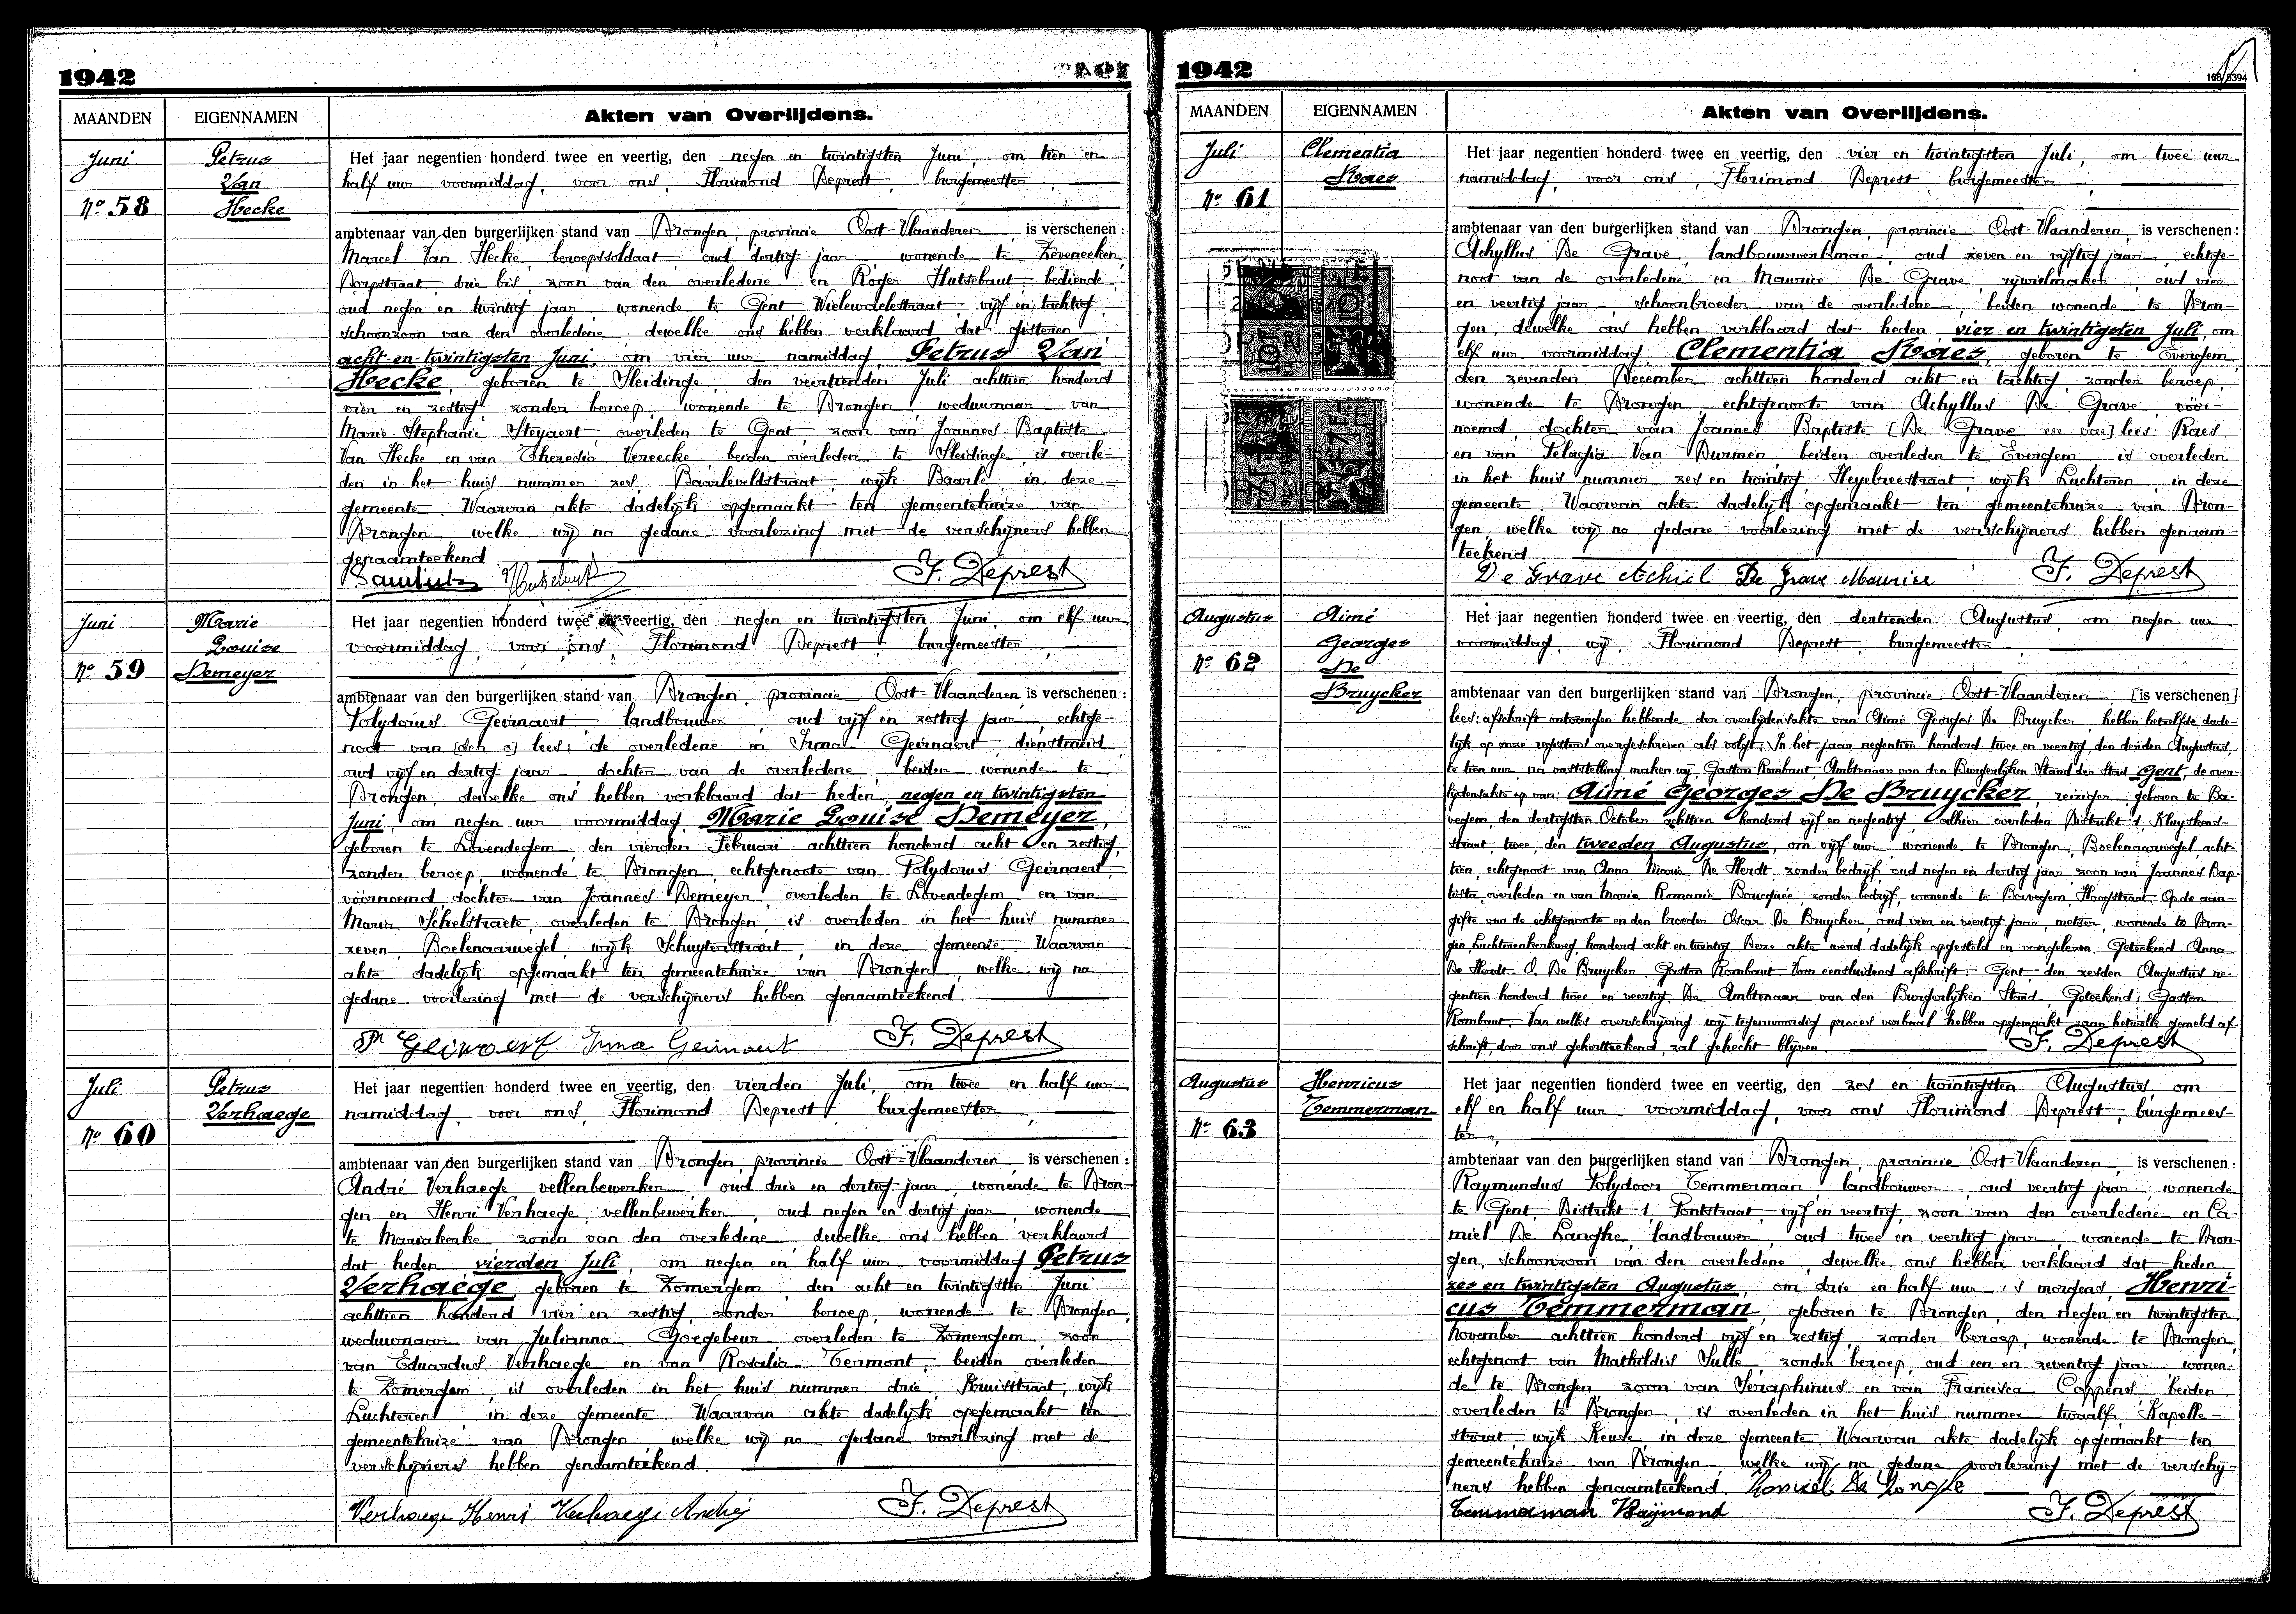 1942
MAANDEN EIGENNAMEN Akten van Overlijdens.
Juni
Nº 58
Petrus
Van
Hecke
Het jaar negentien honderd twee en veertig, den negen en twintigsten Juni, om tien en
half uur voormiddag, voor ons, Florimond Deprest, burgemeester,
ambtenaar van den burgerlijken stand van Drongen, provincie Oost-Vlaanderen, is verschenen:
Marcel Van Hecke, beroepssoldaat, oud dertig jaar, wonende te Zeveneeken,
Dorpstraat drie bis, zoon van den overledene en Roger Hutsebaut, bediende,
oud negen en twintig jaar, wonende te Gent Wielewaelstraat, vijf en tachtig,
schoonzoon van den overledene dewelke ons hebben verklaard dat gisteren
acht-en-twintigsten Juni, om vier uur namiddag, Petrus Van
Hecke, geboren te Sleidinge, den veertienden Juli achttien honderd
vier en zestig, zonder beroep, wonende te Drongen, weduwnaar van
Marie Stephanie Steyaert, overleden te Gent, zoon van Joannes Baptiste
Van Hecke en van Theresia Vereecke, beiden overleden te Sleidinge, is overle-
den in het huis nummer zes, Baarleveldstraat, wijk Baarle, in deze
gemeente. Waarvan akte dadelijk opgemaakt ten gemeentehuize van
Drongen, welke wij na gedane voorlezing met de verschijners hebben
genaamteekend.
F. Deprest
Juni
Nº 59
Marie
Louise
Demeyer
Het jaar negentien honderd twee en veertig, den negen en twintigsten Juni, om elf uur
voormiddag, voor ons, Florimond Deprest, burgemeester,
ambtenaar van den burgerlijken stand van Drongen, provincie Oost-Vlaanderen, is verschenen:
Polydorus Geirnaert, landbouwer, oud vijf en zestig jaar, echtge-
noot van [den o] lees: de overledene en Irma Geirnaert, dienstmeid,
oud vijf en dertig jaar, dochter van de overledene, beiden wonende te
Drongen, dewelke ons hebben verklaard dat heden, negen en twintigsten
Juni, om negen uur voormiddag, Marie Louise Demeyer,
geboren te Lovendegem, den vierden Februari achttien honderd acht en zestig,
zonder beroep, wonende te Drongen, echtgenoote van Polydorus Geirnaert,
vóórnoemd, dochter van Joannes Demeyer, overleden te Lovendegem, en van
Maria Schelstraete, overleden te Drongen, is overleden in het huis nummer
zeven, Boelenaarwegel, wijk Schuyterstraat, in deze gemeente. Waarvan
akte dadelijk opgemaakt ten gemeentehuize van Drongen, welke wij na
gedane voorlezing met de verschijners hebben genaamteekend.
Geirnaert Irma Geirnaert F. Deprest
Juli
Nº 60
Petrus
Verhaege
Het jaar negentien honderd twee en veertig, den vierden Juli, om twee en half uur
namiddag, voor ons, Florimond Deprest, burgemeester,
ambtenaar van den burgerlijken stand van Drongen, provincie Oost-Vlaanderen, is verschenen:
André Verhaege, vellenbewerker, oud drie en dertig jaar, wonende te Dron-
gen en Henri Verhaege, vellenbewerker, oud negen en dertig jaar, wonende
te Mariakerke zonen van den overledene dewelke ons hebben verklaard
dat heden, vierden Juli, om negen en half uur voormiddag Petrus
Verhaege, geboren te Zomergem, den acht en twintigsten Juni
achttien honderd vier en zestig, zonder beroep, wonende te Drongen,
weduwnaar van Julianna Goegebeur, overleden te Zomergem, zoon
van Eduardus Verhaege en van Rosalia Termont, beiden overleden
te Zomergem, is overleden in het huis nummer drie, Kruisstraat, wijk
Luchteren, in deze gemeente. Waarvan akte dadelijk opgemaakt ten
gemeentehuize van Drongen, welke wij na gedane voorlezing met de
verschijners hebben genaamteekend.
Verhaege Henri Verhaege André F. Deprest
1942
MAANDEN EIGENNAMEN Akten van Overlijdens.
Juli
Nº 61
Clementia
Raes
Het jaar negentien honderd twee en veertig, den vier en twintigsten Juli, om twee uur
namiddag, voor ons, Florimond Deprest, burgemeester,
ambtenaar van den burgerlijken stand van Drongen, provincie Oost-Vlaanderen, is verschenen:
Achyllus De Grave, landbouwwerkman, oud zeven en vijftig jaar, echtge-
noot van de overledene en Maurice De Grave, rijwielmaker, oud vier
en veertig jaar, schoonbroeder van de overledene, beiden wonende te Dron-
gen, dewelke ons hebben verklaard dat heden vier en twintigsten Juli, om
elf uur voormiddag, Clementia Raes, geboren te Evergem,
den zevenden December achttien honderd acht en tachtig, zonder beroep,
wonende te Drongen, echtgenoote van Achyllus De Grave, vóór-
noemd, dochter van Joannes Baptiste [De Grave en van] lees: Raes
en van Pelagia Van Durmen beiden overleden te Evergem is overleden
in het huis nummer zes en twintig, Heyebreestraat, wijk Luchteren, in deze
gemeente. Waarvan akte dadelijk opgemaakt ten gemeentehuize van Dron-
gen, welke wij na gedane voorlezing met de verschijners hebben genaam-
teekend.
De Grave Achiel De Grave Maurice F. Deprest
Augustus
Nº 62
Aimé
Georges
De
Bruycker
Het jaar negentien honderd twee en veertig, den dertienden Augustus, om negen uur
voormiddag, wij, Florimond Deprest, burgemeester,
ambtenaar van den burgerlijken stand van Drongen, provincie Oost-Vlaanderen, [is verschenen]
lees: afschrift ontvangen hebbende der overlijdensakte van Aimé Georges De Bruycker hebben hetzelfde dade-
lijk op onze registers overgeschreven als volgt: In het jaar negentien honderd twee en veertig, den derden Augustus,
te tien uur, na vaststelling maken wij, Gaston Rombaut, Ambtenaar van den Burgerlijken Stand der Stad Gent, de over-
lijdensakte op van: Aimé Georges De Bruycker, reiziger, geboren te Ba-
vegem, den dertigsten October achttien honderd vijf en negentig, alhier overleden Distrikt 1, Kluyskens-
straat, twee, den tweeden Augustus, om vijf uur, wonende te Drongen, Boelenaarwegel, acht-
tien, echtgenoot van Anna Maria De Herdt, zonder bedrijf, oud negen en dertig jaar, zoon van Joannes Bap-
tista, overleden en van Maria Romanie Boucquée, zonder bedrijf, wonende te Bavegem, Hoogstraat. Op de aan-
gifte van de echtgenoote en den broeder Oscar De Bruycker, oud vier en veertig jaar, metser, wonende te Dron-
gen, Luchterenkerkweg, honderd acht en twintig. Deze akte werd dadelijk opgesteld en voorgelezen. Geteekend: Anna
De Herdt. O. De Bruycker. Gaston Rombaut. Voor eensluidend afschrift. Gent, den zesden Augustus ne-
gentien honderd twee en veertig. De Ambtenaar van den Burgerlijken Stand, Geteekend: Gaston
Rombaut. Van welks overschrijving wij tegenwoordig proces verbaal hebben opgemaakt aan hetwelk gemeld af-
schrift, door ons gekortteekend, zal gehecht blijven. F. Deprest
Augustus
Nº 63
Henricus
Temmerman
Het jaar negentien honderd twee en veertig, den zes en twintigsten Augustus, om
elf en half uur voormiddag, voor ons Florimond Deprest, burgemees-
ter,
ambtenaar van den burgerlijken stand van Drongen, provincie Oost-Vlaanderen, is verschenen:
Raymundus Polydoor Temmerman, landbouwer, oud veertig jaar, wonende
te Gent, Distrikt 1, Pontstraat, vijf en veertig, zoon van den overledene en Ca-
miel De Langhe, landbouwer, oud twee en veertig jaar, wonende te Dron-
gen, schoonzoon van den overledene, dewelke ons hebben verklaard dat heden,
zes en twintigsten Augustus, om drie en half uur 's morgens, Henri-
cus Temmerman, geboren te Drongen, den negen en twintigsten
November achttien honderd vijf en zestig, zonder beroep, wonende te Drongen,
echtgenoot van Mathildis Sulle, zonder beroep, oud een en zeventig jaar, wonen-
de te Drongen, zoon van Seraphinus en van Francisca Coppens beiden
overleden te Drongen, is overleden in het huis nummer twaalf, Kapelle-
straat, wijk Keuze, in deze gemeente. Waarvan akte dadelijk opgemaakt ten
gemeentehuize van Drongen, welke wij na gedane voorlezing met de verschij-
ners hebben genaamteekend. Kamiel De Langhe
Temmerman Raymond F. Deprest